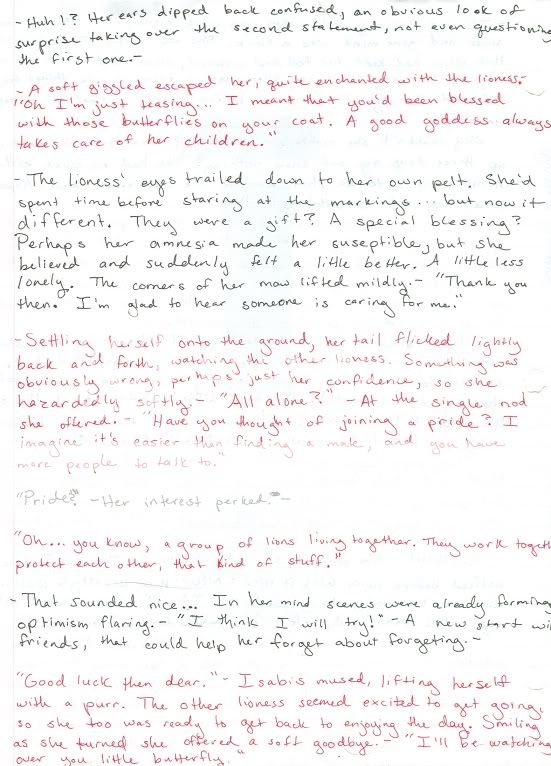 - Huh!? Her ears dipped back confused, an obvious look of
surprise taking over the second statement, not even questioning
the first one.-
- A soft giggled escaped her, quite enchanted with the lioness.-
"Oh I'm just teasing... I meant that you'd been blessed
with those butterflies on your coat. A good goddess always
takes care of her children."
- The lioness' eyes trailed down to her own pelt. She'd
spent time before staring at the markings... but now it
different. They were a gift? A special blessing?
Perhaps her amnesia made her suseptible, but she
believed and suddenly felt a little better. A little less
lonely. The corners of her maw lifted mildly.- "Thank you
then. I'm glad to hear someone is caring for me."
-Settling herself onto the ground, her tail flicked lightly
back and forth, watching the other lioness. Something was
obviously wrong, perhaps just her confidence, so she
hazardedly softly.- "All alone?" - At the single nod
she offered.- "Have you thought of joining a pride? I
imagine it's easier then finding a mate, and you have
more people to talk to."
"Pride?" -Her interest perked.-
"Oh... you know, a group of lions living together. They work togeth
protect each other, that kind of stuff."
- That sounded nice... In her mind scenes were already forming
optimism flaring.- "I think I will try!" - A new start wi
friends, that could help her forget about forgeting.-
"Good luck then dear."- Isabis mused, lifting herself
with a purr. The other lioness seemed excited to get going,
so she too was ready to get back to enjoying the day. Smiling
as she turned she offered a soft goodbye.- "I'll be watching
over you little butterfly."